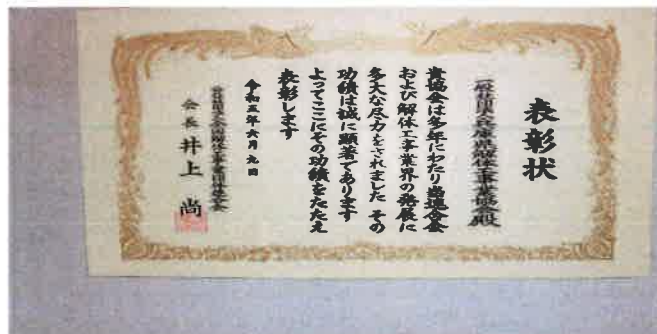 表彰状
一般社団法人兵庫県解体工事業協会殿
貴協会は多年にわたり当連合会
および解体工事業界の発展に
多大な尽力をされました その
功績は誠に顕著であります
よってここにその功績をたたえ
表彰します
令和五年六月九日
公益社団法人全国解体工事業団体連合会
会長 井上 尚